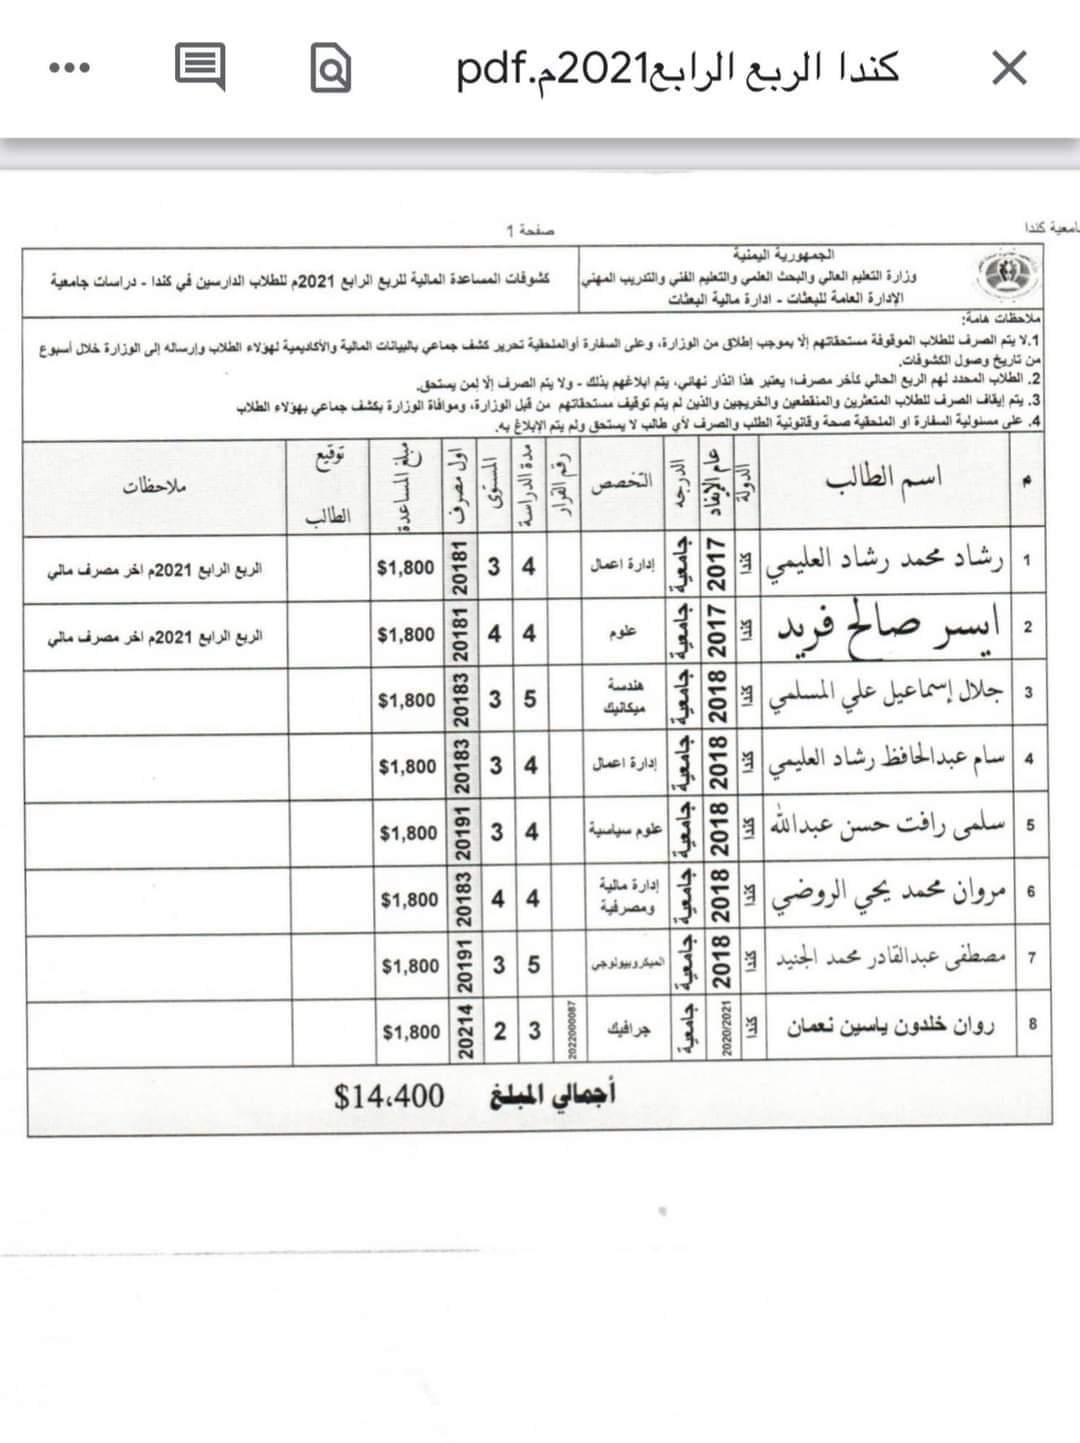 كندا الربع الرابع2021م.pdf
صفحة 1
امعية كندا
الجمهورية اليمنية
وزارة التعليم العالي والبحث العلمي والتعليم الفني والتدريب المهني
الإدارة العامة للبعثات - ادارة مالية البعثات
كشوفات المساعدة المالية للربع الرابع 2021م للطلاب الدارسين في كندا - دراسات جامعية
ملاحظات هامة:
1.لا يتم الصرف للطلاب الموقوفة مستحقاتهم إلا بموجب إطلاق من الوزارة، وعلى السفارة أوالملحقية تحرير كشف جماعي بالبيانات المالية والأكاديمية لهؤلاء الطلاب وإرساله إلى الوزارة خلال أسبوع
من تاريخ وصول الكشوفات.
2. الطلاب المحدد لهم الربع الحالي كأخر مصرف؛ يعتبر هذا انذار نهائي، يتم ابلاغهم بذلك - ولا يتم الصرف إلا لمن يستحق.
3. يتم إيقاف الصرف للطلاب المتعثرين والمنقطعين والخريجين والذين لم يتم توقيف مستحقاتهم من قبل الوزارة، وموافاة الوزارة بكشف جماعي بهؤلاء الطلاب
4. على مسئولية السفارة او الملحقية صحة وقانونية الطلب والصرف لأي طالب لا يستحق ولم يتم الإبلاغ به.
م اسم الطالب الدولة عام الإيفاد الدرجه التخصص رقم القرار مدة الدراسة المستوى اول مصرف مبلغ المساعدة توقيع الطالب ملاحظات
1 رشاد محمد رشاد العليمي كندا 2017 جامعية إدارة اعمال 4 3 20181 $1,800 الربع الرابع 2021م اخر مصرف مالي
2 ايسر صالح فريد كندا 2017 جامعية علوم 4 4 20181 $1,800 الربع الرابع 2021م اخر مصرف مالي
3 جلال إسماعيل علي المسلمي كندا 2018 جامعية هندسة ميكانيك 5 3 20183 $1,800
4 سام عبدالحافظ رشاد العليمي كندا 2018 جامعية إدارة اعمال 4 3 20183 $1,800
5 سلمى رافت حسن عبدالله كندا 2018 جامعية علوم سياسية 4 3 20191 $1,800
6 مروان محمد يحي الروضي كندا 2018 جامعية إدارة مالية ومصرفية 4 4 20183 $1,800
7 مصطفى عبدالقادر محمد الجنيد كندا 2018 جامعية الميكروبيولوجي 5 3 20191 $1,800
8 روان خلدون ياسين نعمان كندا 2020/2021 جامعية جرافيك 2022000087 3 2 20214 $1,800
أجمالي المبلغ $14،400